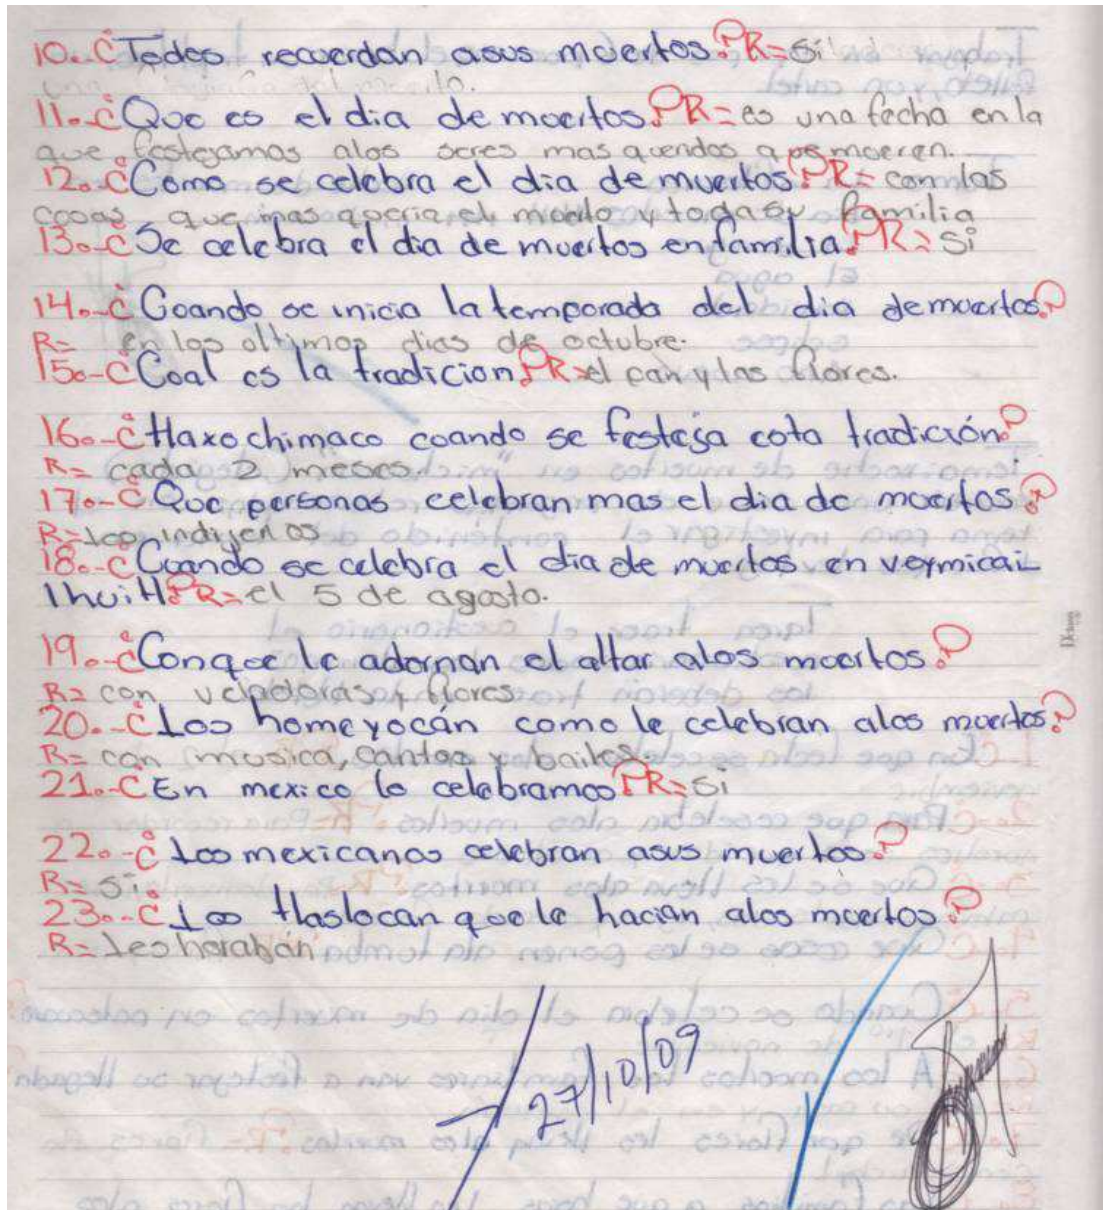 10.-¿Todos recuerdan asus muertos? R= si
11.-¿Que es el dia de muertos? R= es una fecha en la
que festejamos alos seres mas queridos que mueren.
12.-¿Como se celebra el dia de muertos? R= con las
cosas que mas queria el muerto y toda su familia
13.-¿Se celebra el dia de muertos en familia? R= si
14.-¿Cuando se inicia la temporada del dia de muertos?
R= en los ultimos dias de octubre.
15.-¿Cual es la tradicion? R= el pan y las flores.
16.-¿tlaxochimaco cuando se festeja esta tradición?
R= cada 2 meses.
17.-¿Que personas celebran mas el dia de muertos?
R= los indijenas
18.-¿Cuando se celebra el dia de muertos en veymicai
lhuitl? R= el 5 de agosto.
19.-¿Conque le adornan el altar alos muertos?
R= con veladoras y flores
20.-¿Los homeyocán como le celebran alos muertos?
R= con musica, cantos y bailes.
21.-¿En mexico lo celebramos? R= si
22.-¿Los mexicanos celebran asus muertos?
R= si
23.-¿Los tlaslocan que le hacian alos muertos?
R= Les
27/10/09